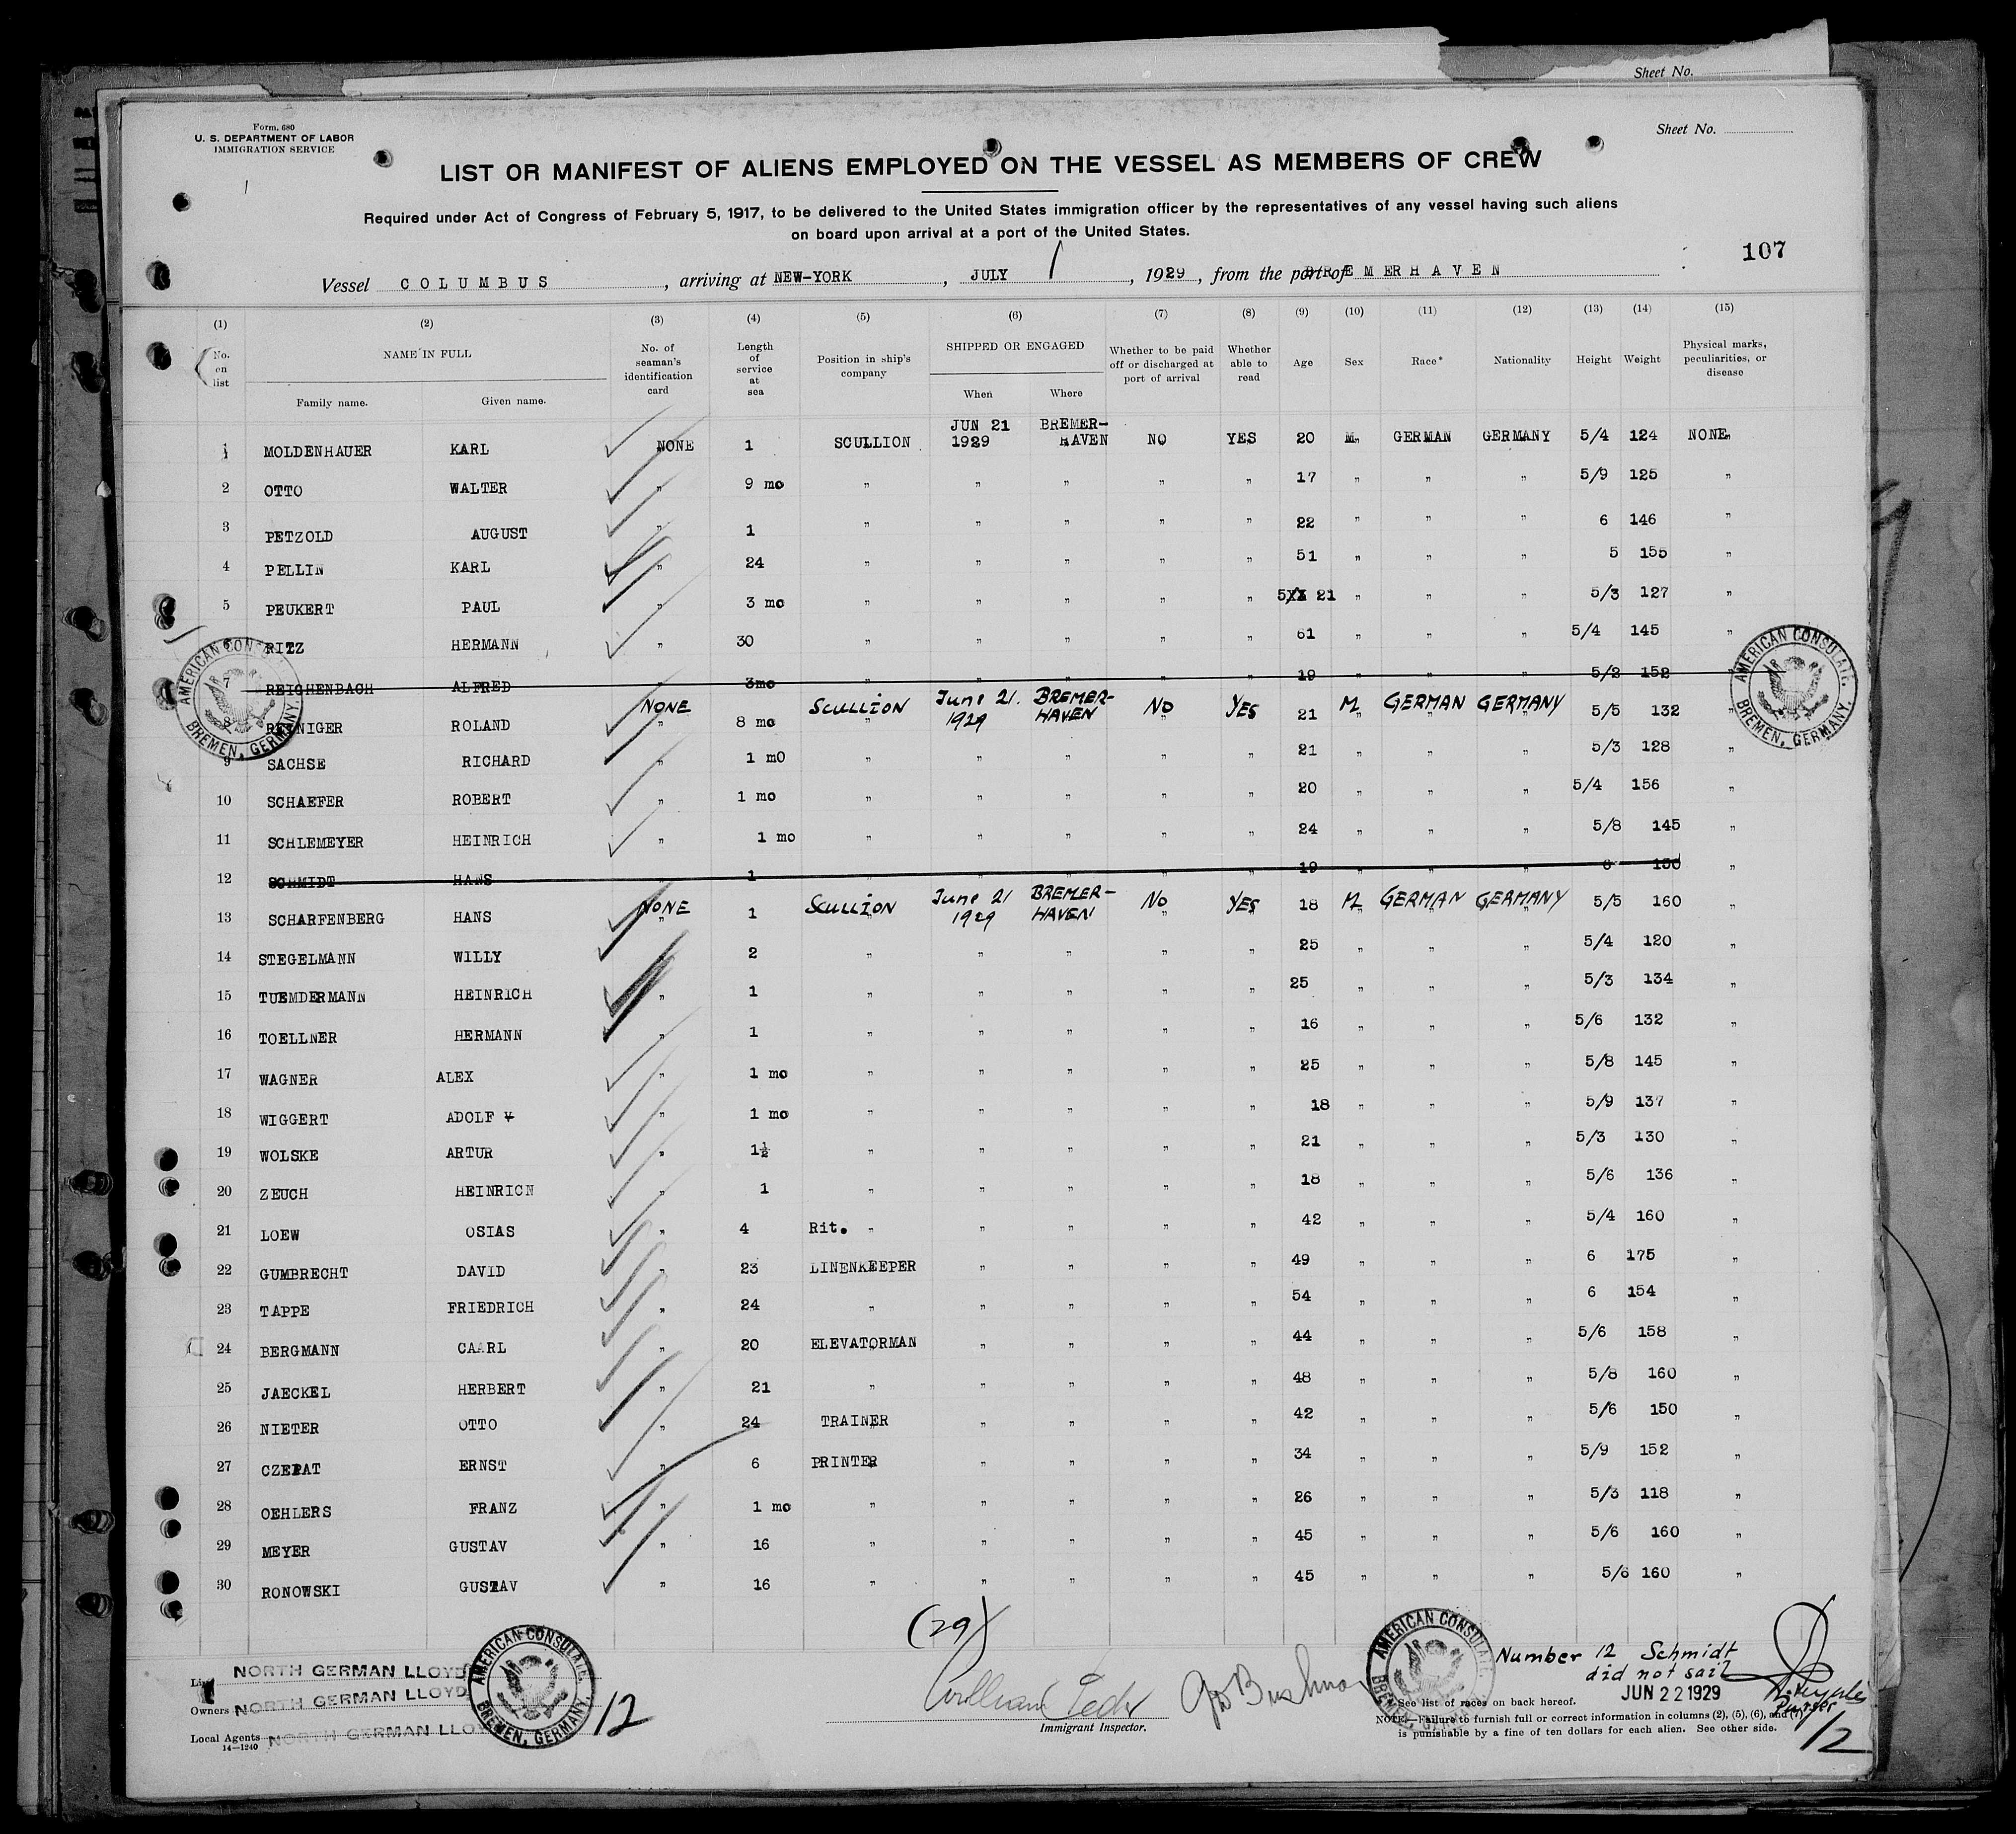 Sheet No.
Form. 680
U. S. DEPARTMENT OF LABOR
IMMIGRATION SERVICE
Sheet No.
LIST OR MANIFEST OF ALIENS EMPLOYED ON THE VESSEL AS MEMBERS OF CREW
Required under Act of Congress of February 5, 1917, to be delivered to the United States immigration officer by the representatives of any vessel having such aliens
on board upon arrival at a port of the United States.
107
Vessel COLUMBUS, arriving at NEW-YORK, JULY 1, 1929, from the port of BREMERHAVEN
(1) (2) (3) (4) (5) (6) (7) (8) (9) (10) (11) (12) (13) (14) (15)
No. on list
NAME IN FULL
Family name. Given name.
No. of seaman's identification card
Length of service at sea
Position in ship's company
SHIPPED OR ENGAGED
When Where
Whether to be paid off or discharged at port of arrival
Whether able to read
Age
Sex
Race*
Nationality
Height
Weight
Physical marks, peculiarities, or disease
1 MOLDENHAUER KARL NONE 1 SCULLION JUN 21 1929 BREMER-HAVEN NO YES 20 M. GERMAN GERMANY 5/4 124 NONE
2 OTTO WALTER " 9 mo " " " " " 17 " " " 5/9 125 "
3 PETZOLD AUGUST " 1 " " " " " 22 " " " 6 146 "
4 PELLIN KARL " 24 " " " " " 51 " " " 5 155 "
5 PEUKERT PAUL " 3 mo " " " " " 5XX 21 " " " 5/3 127 "
6 RITZ HERMANN " 30 " " " " " 61 " " " 5/4 145 "
7 REICHENBACH ALFRED 3mo " " " " " 19 " " " 5/2 152
8 RENNIGER ROLAND NONE 8 mo SCULLION June 21. 1929 BREMER-HAVEN NO YES 21 M GERMAN GERMANY 5/5 132 "
9 SACHSE RICHARD " 1 m0 " " " " " 21 " " " 5/3 128 "
10 SCHAEFER ROBERT " 1 mo " " " " " 20 " " " 5/4 156 "
11 SCHLEMEYER HEINRICH " 1 mo " " " " " 24 " " " 5/8 145 "
12 SCHMIDT HANS 1 " " " " " 19 " " " 6 150 "
13 SCHARFENBERG HANS NONE 1 SCULLION June 21 1929 BREMER-HAVEN No YES 18 M GERMAN GERMANY 5/5 160 "
14 STEGELMANN WILLY " 2 " " " " " 25 " " " 5/4 120 "
15 TUEMDERMANN HEINRICH " 1 " " " " " 25 " " " 5/3 134 "
16 TOELLNER HERMANN " 1 " " " " " 16 " " " 5/6 132 "
17 WAGNER ALEX " 1 mo " " " " " 25 " " " 5/8 145 "
18 WIGGERT ADOLF " 1 mo " " " " " 18 " " " 5/9 137 "
19 WOLSKE ARTUR " 1½ " " " " " 21 " " " 5/3 130 "
20 ZEUCH HEINRICH " 1 " " " " " 18 " " " 5/6 136 "
21 LOEW OSIAS " 4 Rit. " " " " " 42 " " " 5/4 160 "
22 GUMBRECHT DAVID " 23 LINENKEEPER " " " " 49 " " " 6 175 "
23 TAPPE FRIEDRICH " 24 " " " " " 54 " " " 6 154 "
24 BERGMANN CAARL " 20 ELEVATORMAN " " " " 44 " " " 5/6 158 "
25 JAECKEL HERBERT " 21 " " " " " 48 " " " 5/8 160 "
26 NIETER OTTO " 24 TRAINER " " " " 42 " " " 5/6 150 "
27 CZEPAT ERNST " 6 PRINTER " " " " 34 " " " 5/9 152 "
28 OEHLERS FRANZ " 1 mo " " " " " 26 " " " 5/3 118 "
29 MEYER GUSTAV " 16 " " " " " 45 " " " 5/6 160 "
30 RONOWSKI GUSTAV " 16 " " " " " 45 " " " 5/6 160 "
AMERICAN CONSULATE. BREMEN, GERMANY.
AMERICAN CONSULATE. BREMEN, GERMANY.
(29)
NORTH GERMAN LLOYD
Owners NORTH GERMAN LLOYD
Local Agents NORTH GERMAN LLOYD
14—1240
AMERICAN CONSULATE. BREMEN, GERMANY.
12
William
Immigrant Inspector.
AMERICAN CONSULATE. BREMEN, GERMANY.
Number 12 Schmidt
did not sail
JUN 22 1929
Purser
12
* See list of races on back hereof.
NOTE.—Failure to furnish full or correct information in columns (2), (5), (6), and (7)
is punishable by a fine of ten dollars for each alien. See other side.